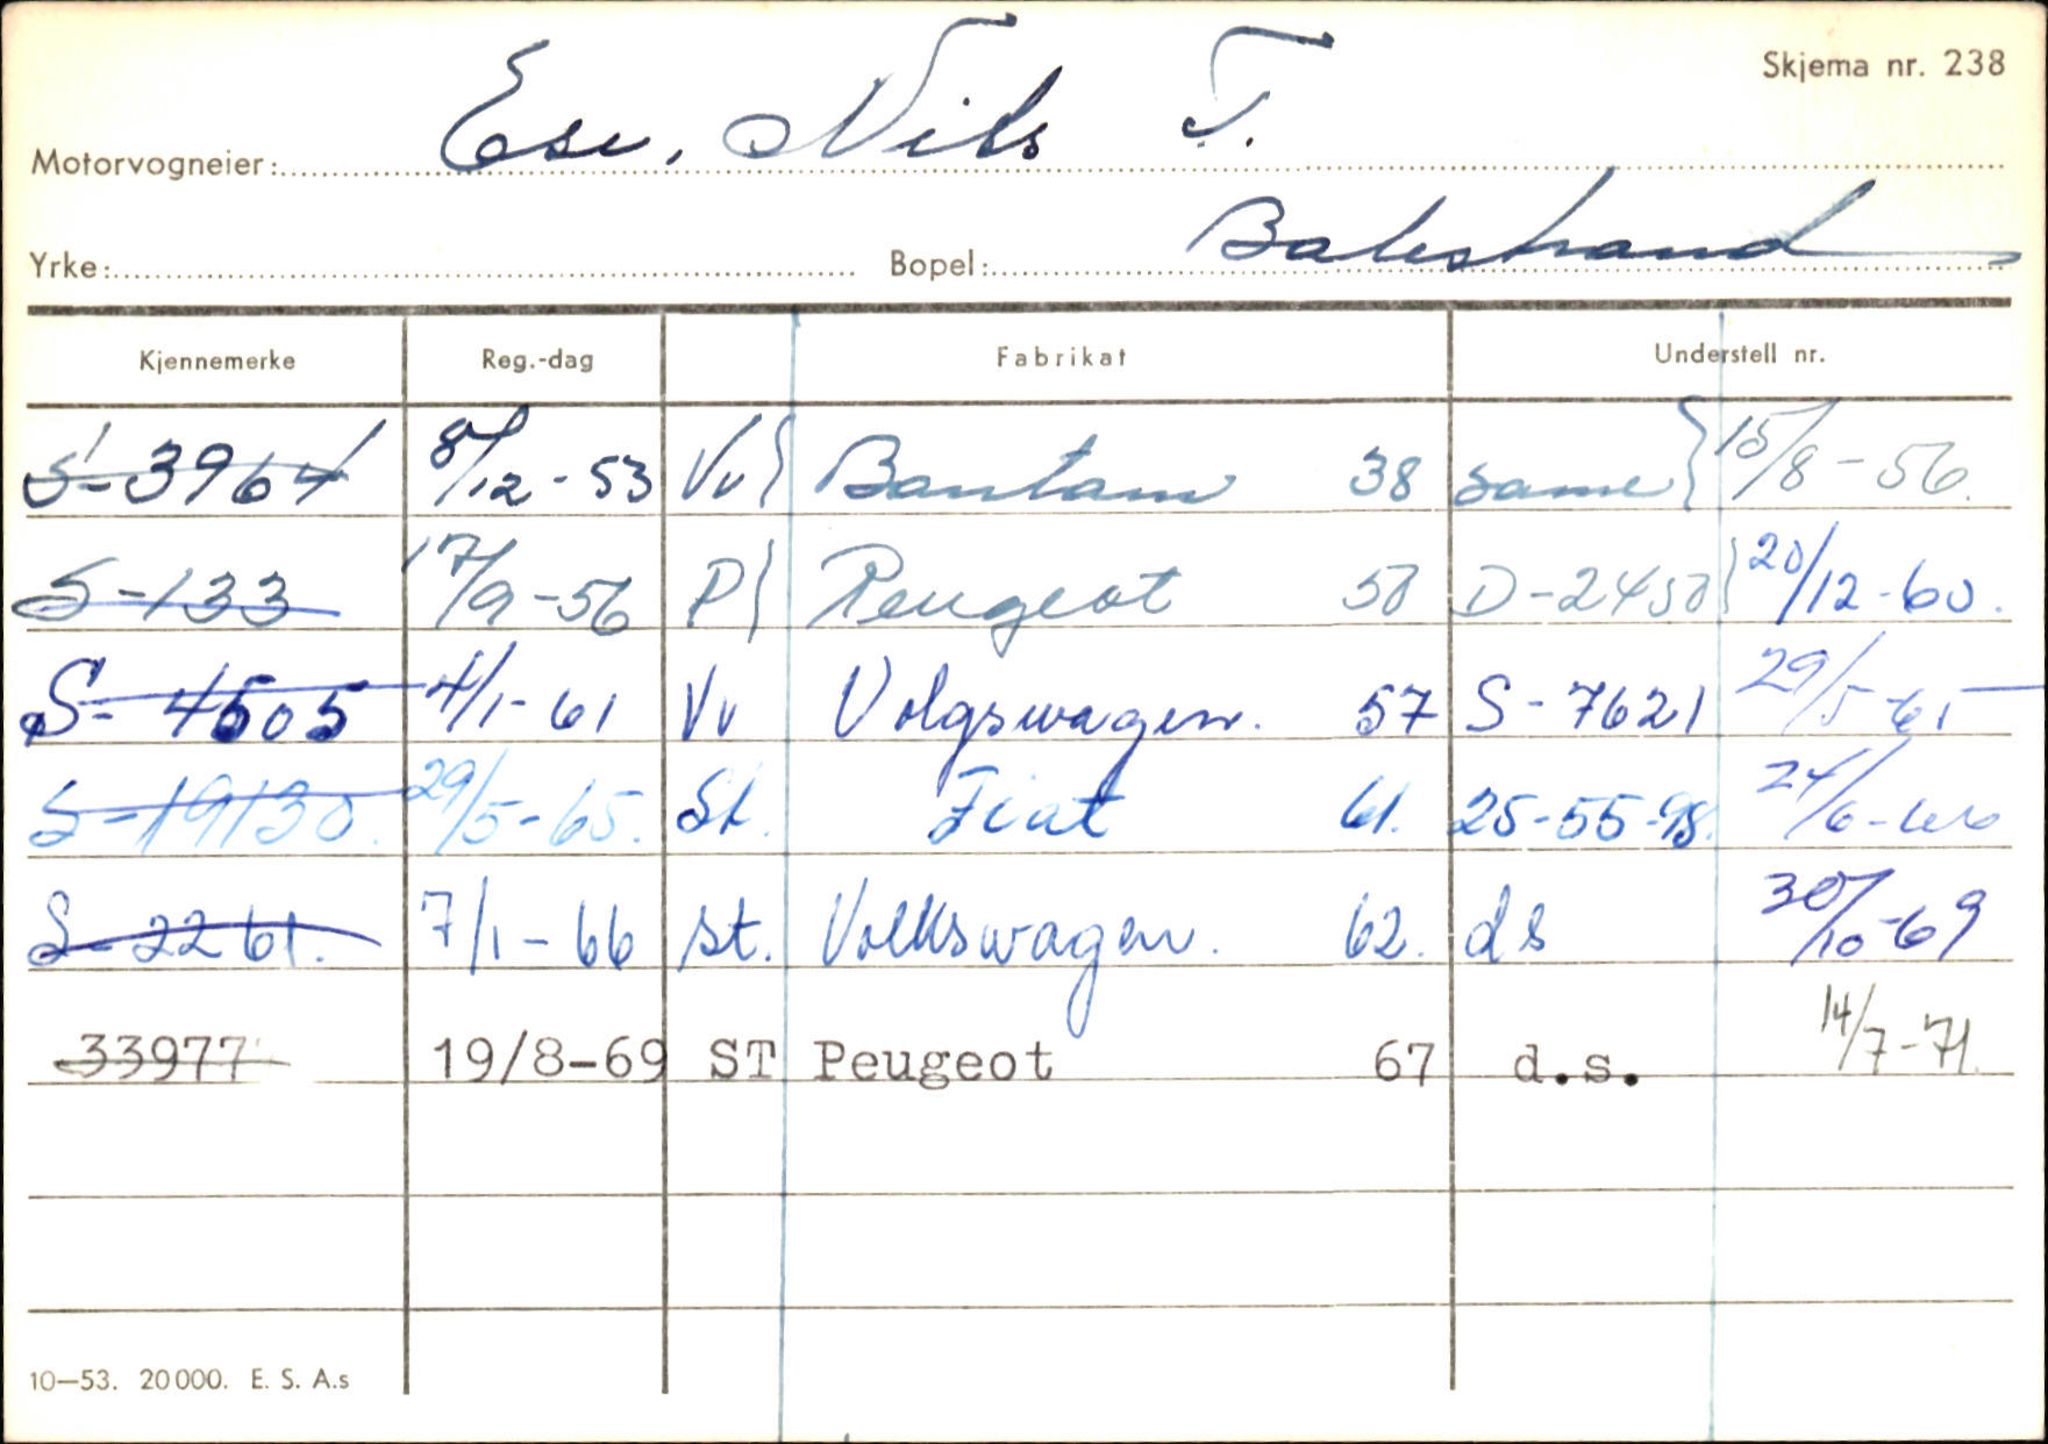 Skjema nr. 238
Motorvogneier: Ese, Nils T.
Yrke: Bopel: Balestrand
Kjennemerke Reg.-dag Fabrikat Understell nr.
S-3964 8/12-53 Vv } Bantam 38 same } 15/8-56.
S-133 17/9-56 P } Peugeot 50 D-2450 } 20/12-60.
S-4505 4/1-61 Vv Volgswagen. 57 S-7621 29/5-61
S-19130. 29/5-65. St. Fiat 61. 25-55-98. 24/6-66
S-2261. 7/1-66 st. Volkswagen. 62. ds 30/10-69
33977 19/8-69 ST Peugeot 67 d.s. 14/7-71.
10—53. 20000. E. S. A.s